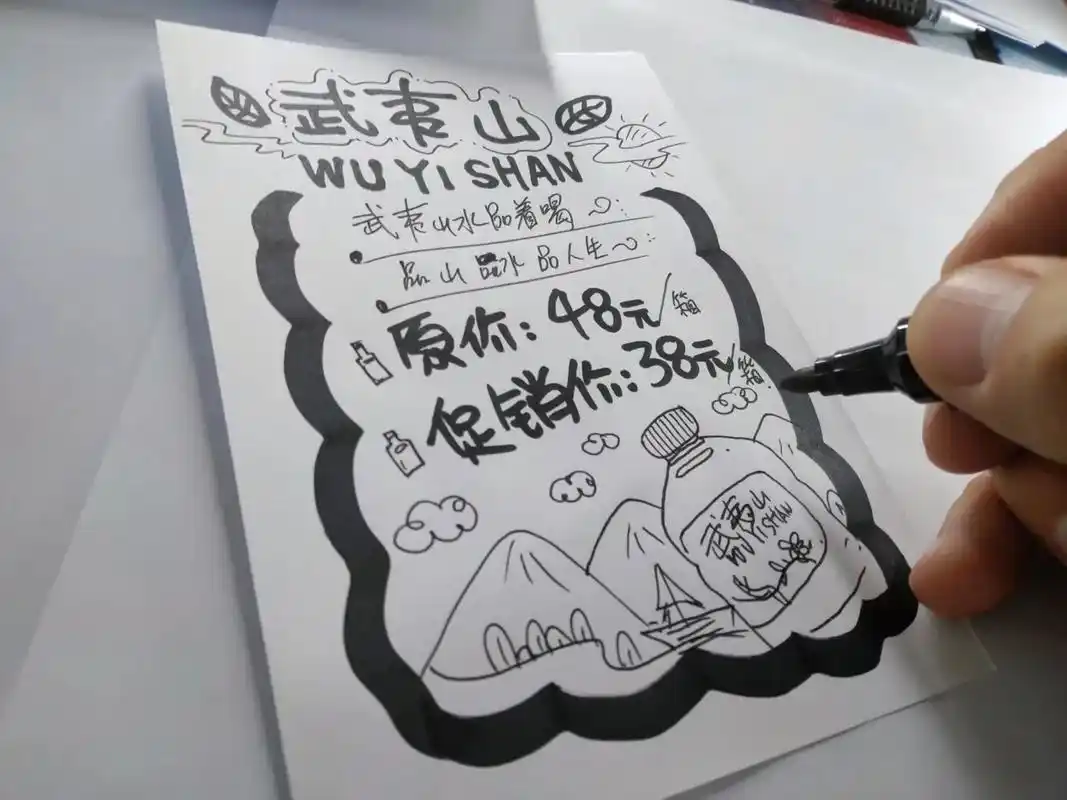 武夷山
WU YI SHAN
武夷山水品着喝
品山 品水 品人生
原价: 48元/箱
促销价: 38元/箱
武夷山